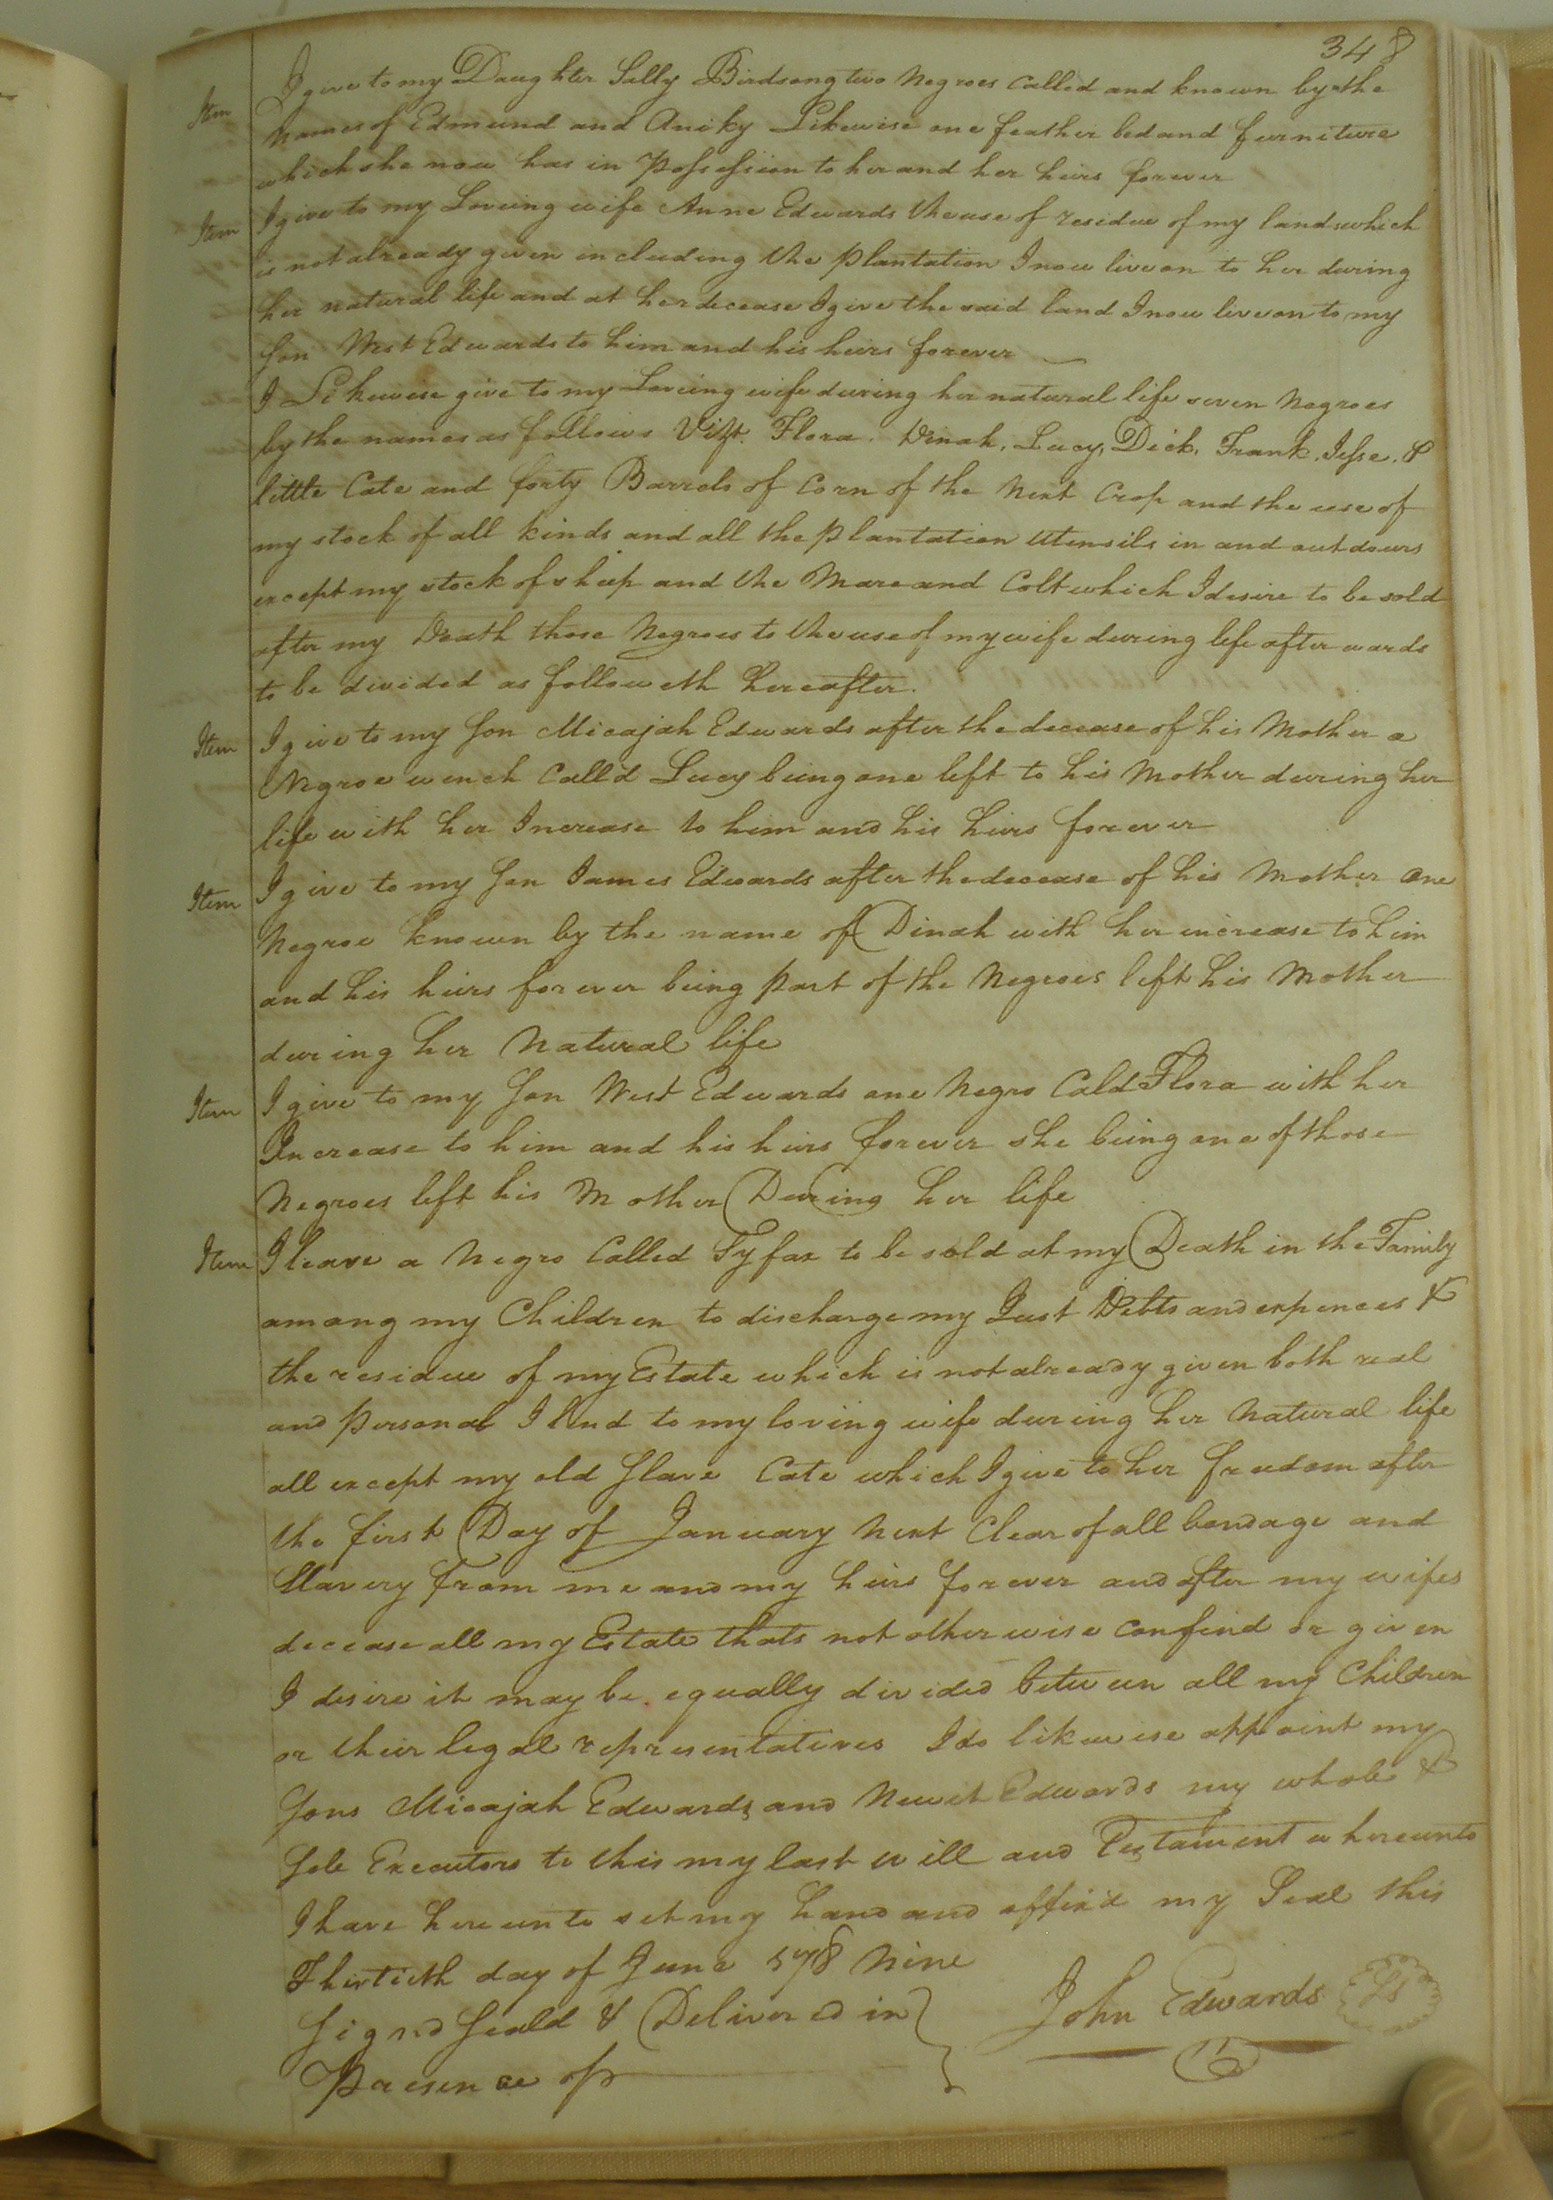 348
Item I give to my Daughter Sally Birdsong two Negroes Called and known by the
names of Edmund and Aniky Likewise one feather bed and furniture
which she now has in Possession to her and her heirs forever
Item I give to my Loveing wife Anne Edwards the use of residue of my lands which
is not already given including the Plantation I now live on to her during
her natural life and at her decease I give the said land I now live on to my
Son West Edwards to him and his heirs forever
I Likewise give to my Loveing wife during her natural life seven Negroes
by the names as follows Vizt. Flora. Dinah, Lucy, Dick, Frank, Jesse, &
little Cate and forty Barrels of Corn of the Next Crop and the use of
my stock of all kinds and all the plantation Utensils in and out doors
except my stock of sheep and the Mare and Colt which I desire to be sold
after my Death those Negroes to the use of my wife during life after wards
to be divided as followeth hereafter.
Item I give to my Son Micajah Edwards after the decease of his Mother a
Negroe wench Call'd Lucy being one left to his Mother during her
life with her Increase to him and his heirs forever
Item I give to my Son James Edwards after the decease of his Mother one
Negroe known by the name of Dinah with her increase to him
and his heirs forever being part of the Negroes left his Mother
during her Natural life
Item I give to my Son West Edwards one Negro Cald Flora with her
Increase to him and his heirs forever she being one of those
Negroes left his Mother During her life
Item I leave a Negro Called to be sold at my Death in the Family
among my Children to discharge my Just Debts and expences &
the residue of my Estate which is not already given both real
and personal I lend to my loving wife during her Natural life
all except my old Slave Cate which I give to her freedom after
the first Day of January Next Clear of all bondage and
Slavery from me and my heirs forever and after my wifes
decease all my Estate thats not other wise confind or given
I desire it may be equally divided between all my Children
or their legal representatives I do likewise appoint my
Sons Micajah Edwards and Newit Edwards my whole &
Sole Executors to this my last will and Testament whereunto
I have hereunto set my hand and affix'd my Seal this
Thirtieth day of June 178 Nine
Signd Seald & Delivered in } John Edwards LS
Presence of